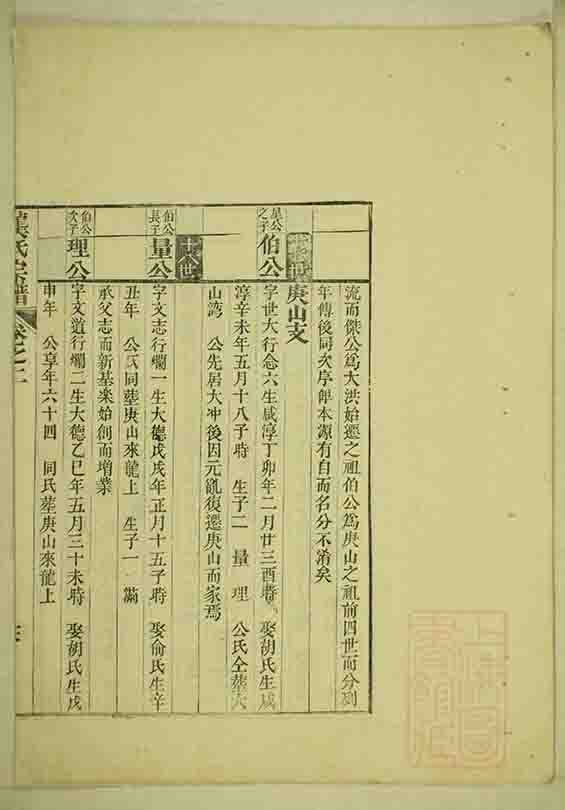 流而傑公爲大洪始遷之祖伯公爲庚山之祖前四世而分列
年傳後同次序俾本源有自而名分不淆矣
世
庚山支
星公之子
伯公
字世大行念六生咸淳丁卯年二月廿三酉時 娶胡氏生咸
淳辛未年五月十八子時 生子二 量 理 公氏仝葬大
山灣 公先居大冲後因元亂復遷庚山而家焉
十八世
伯公長子
量公
字文志行爛一生大德戊戌年正月十五子時 娶俞氏生辛
丑年 公氏同葬庚山來龍上 生子一 滿
承父志而新基業始創而增業
伯公次子
理公
字文道行爛二生大德乙巳年五月三十未時 娶胡氏生戊
申年 公享年六十四 同氏葬庚山來龍上
氏宗譜
卷之二